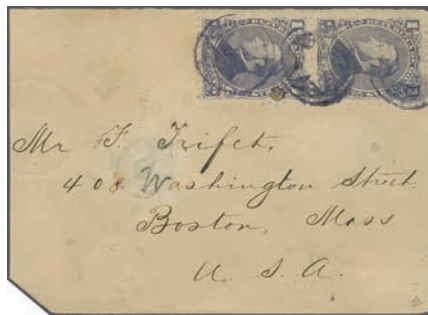 Mr F. Trifet,
408 Washington Street
Boston, Mass
U. S. A.